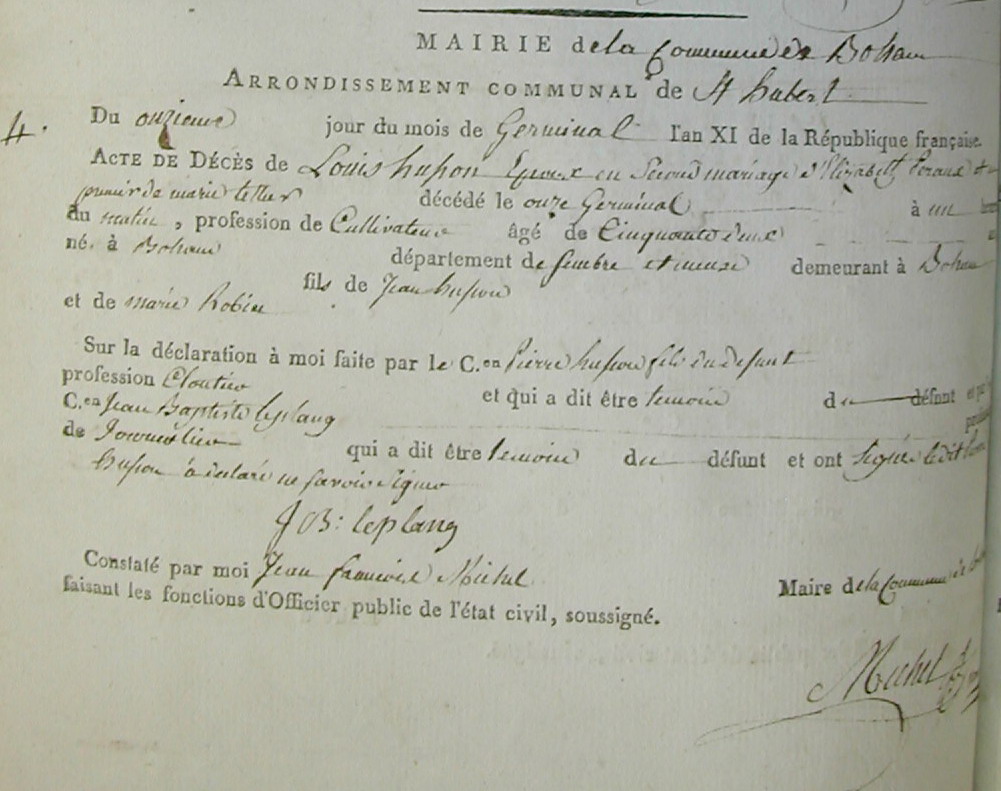 MAIRIE de la Commune de Bohan
ARRONDISSEMENT COMMUNAL de St hubert
4.
Du onzieme jour du mois de Germinal l'an XI de la République française.
ACTE DE DÉCÈS de Louis husson Epoux en Second mariage d'Elizabeth
premier de marie décédé le onze Germinal à un
du matin, profession de Cultivateur âgé de Cinquante deux
né à Bohan département de sembre et meuse demeurant à Bohan
fils de Jean husson
et de marie Robin
Sur la déclaration à moi faite par le C.en Pierre husson fils du defunt
profession Cloutier et qui a dit être temoin du défunt et par
C.en Jean Baptiste leplang
de Journalier qui a dit être temoin du défunt et ont Signé ledit
husson a declaré ne savoir Signer
J B: leplang
Constaté par moi Jean francois Michel Maire de la Commune de
faisant les fonctions d'Officier public de l'état civil, soussigné.
Michel